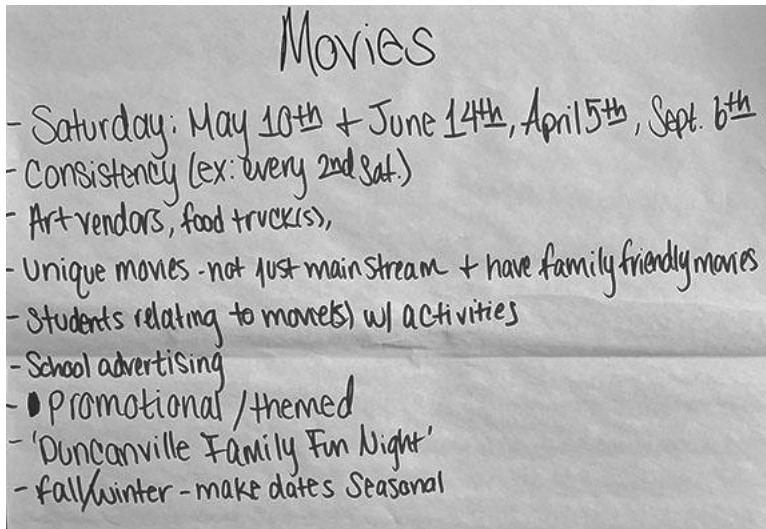 Movies
- Saturday: May 10th + June 14th, April 5th, Sept. 6th
- Consistency (ex: every 2nd Sat.)
- Art vendors, food truck(s),
- Unique movies - not just mainstream + have family friendly movies
- Students relating to movie(s) w/ activities
- School advertising
- Promotional / themed
- 'Duncanville Family Fun Night'
- fall/winter - make dates Seasonal